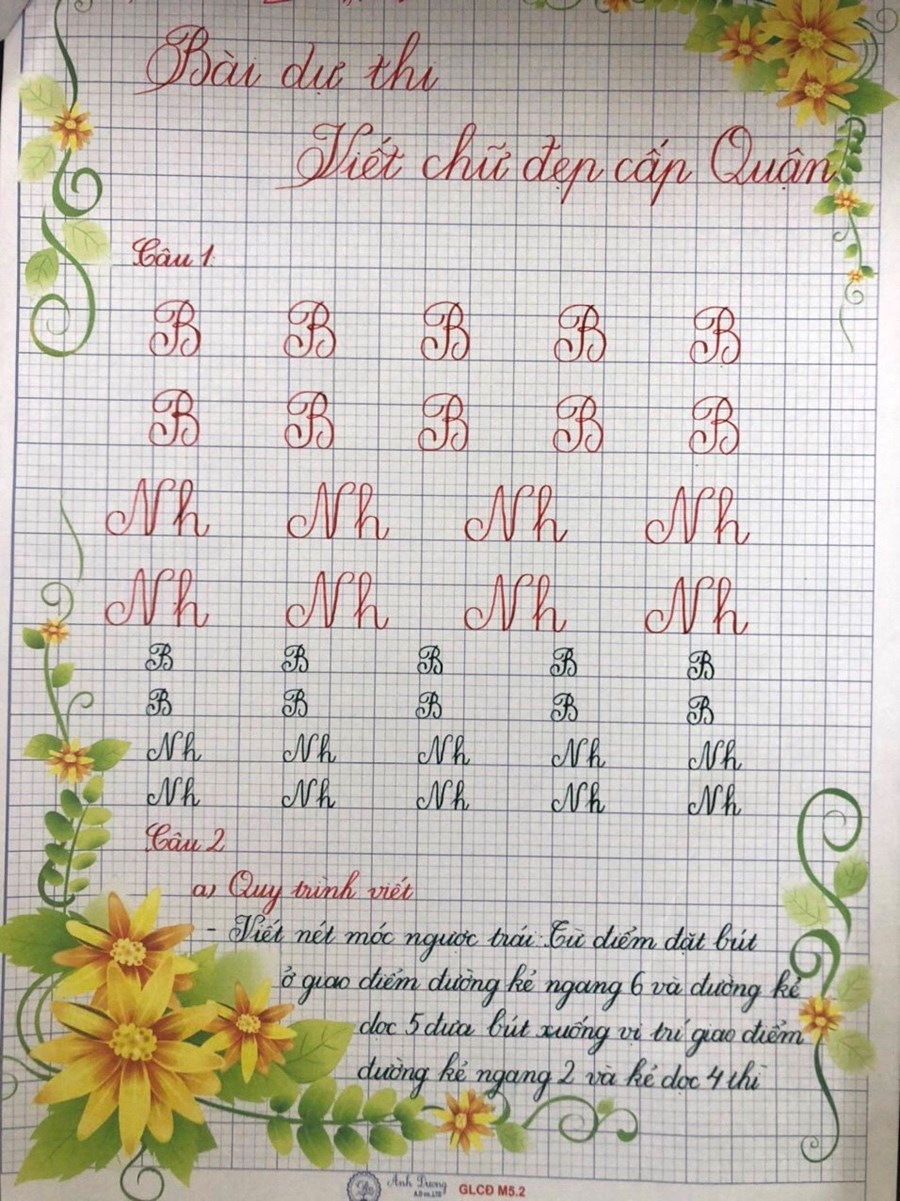 Bài dự thi
Viết chữ đẹp cấp Quận
Câu 1
B B B B B
B B B B B
Nh Nh Nh Nh
Nh Nh Nh Nh
B B B B B
B B B B B
Nh Nh Nh Nh Nh
Nh Nh Nh Nh Nh
Câu 2
a) Quy trình viết
- Viết nét móc ngược trái. Từ điểm đặt bút
ở giao điểm đường kẻ ngang 6 và đường kẻ
dọc 5 đưa bút xuống vị trí giao điểm
đường kẻ ngang 2 và kẻ dọc 4 thì
Anh Dương
GLCĐ M5.2